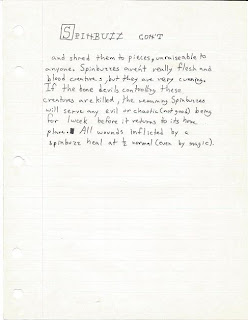 SPINBUZZ CON'T
and shred them to pieces, unraiseable to
anyone. Spinbuzzes arent really flesh and
blood creatures, but they are very cunning.
If the bone devils controlling these
creatures are killed, the remaining Spinbuzzes
will serve any evil or chaotic (not good) being
for 1 week before it returns to its home
plane. All wounds inflicted by a
spinbuzz heal at ½ normal (even by magic).